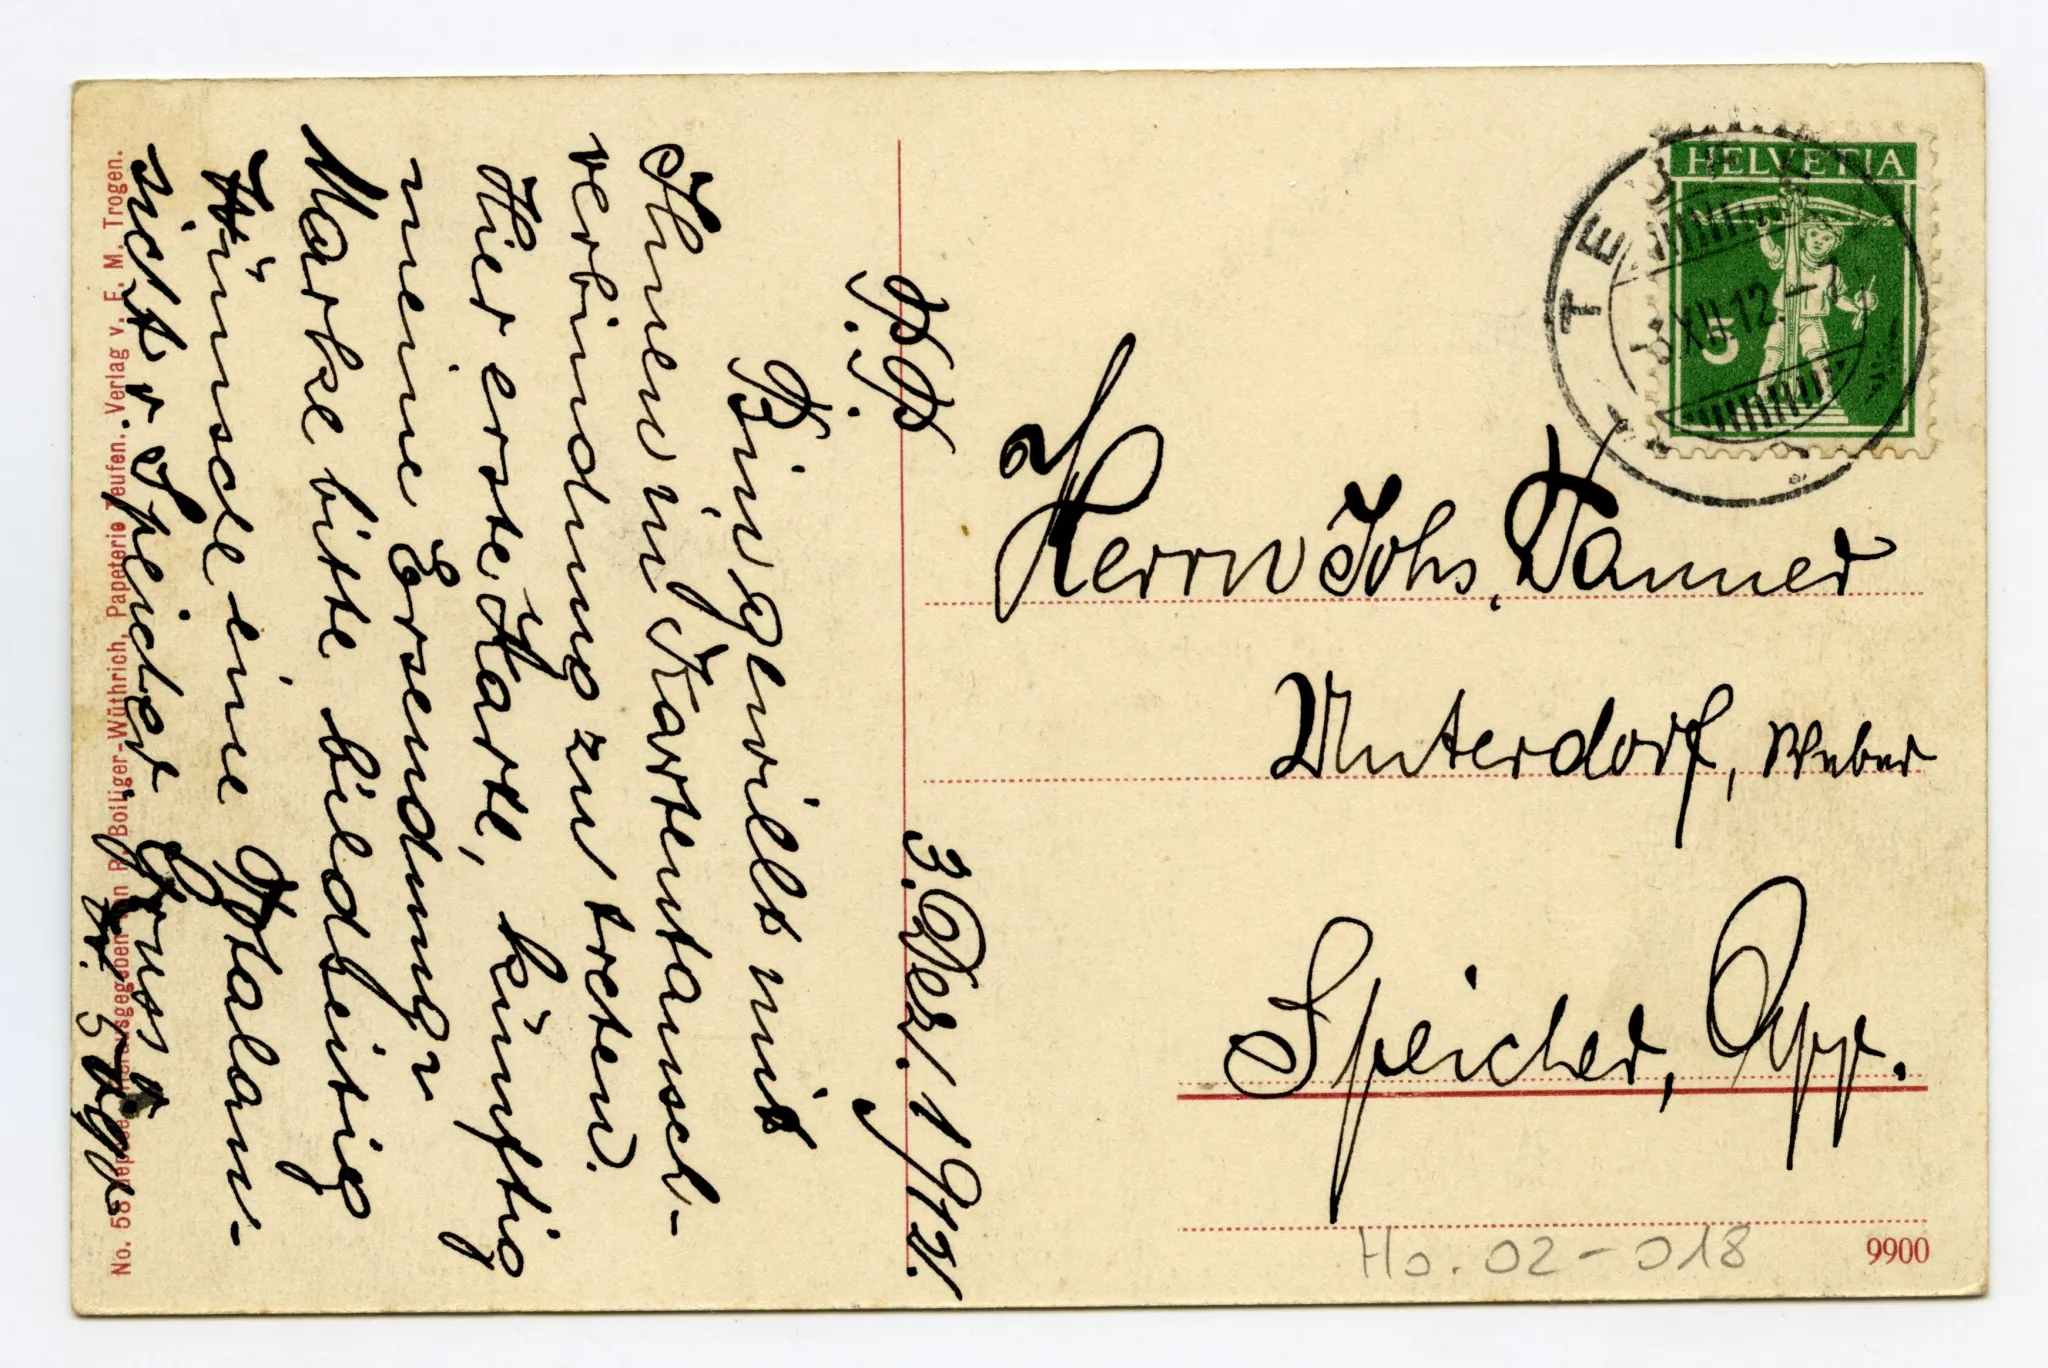 P. P.
3. Dez. 1912.
Bin gewillt mit
Ihnen in Kartentausch-
verbindung zu treten.
Hier erste Karte, künftig
meine Ersendung
Marke bitte bildseitig
Wünsche eine Totalan-
sicht v. Speicher, Gruss
HELVETIA
5
TEUFEN
XII.12.
Herrn Johs. Tanner
Unterdorf, Weber
Speicher, App.
Ho. 02-018
9900
No. 58 Depose. Herausgegeben von R. Bolliger-Wüthrich, Papeterie Teufen. Verlag v. E. M. Trogen.